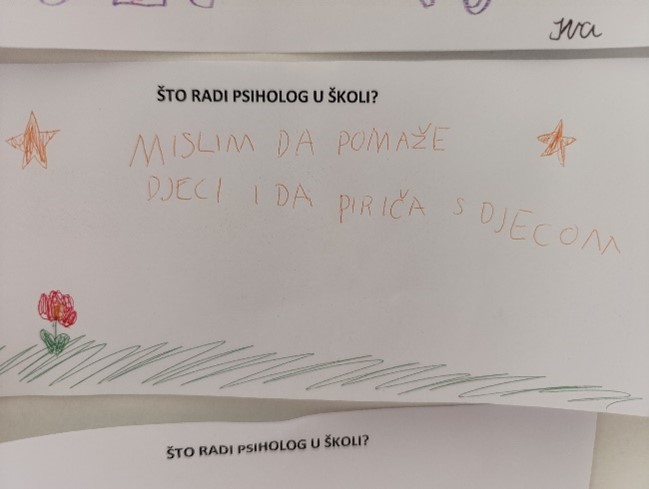 Iva
ŠTO RADI PSIHOLOG U ŠKOLI?
MISLIM DA POMAŽE
DJECI I DA PIRIČA S DJECOM
ŠTO RADI PSIHOLOG U ŠKOLI?